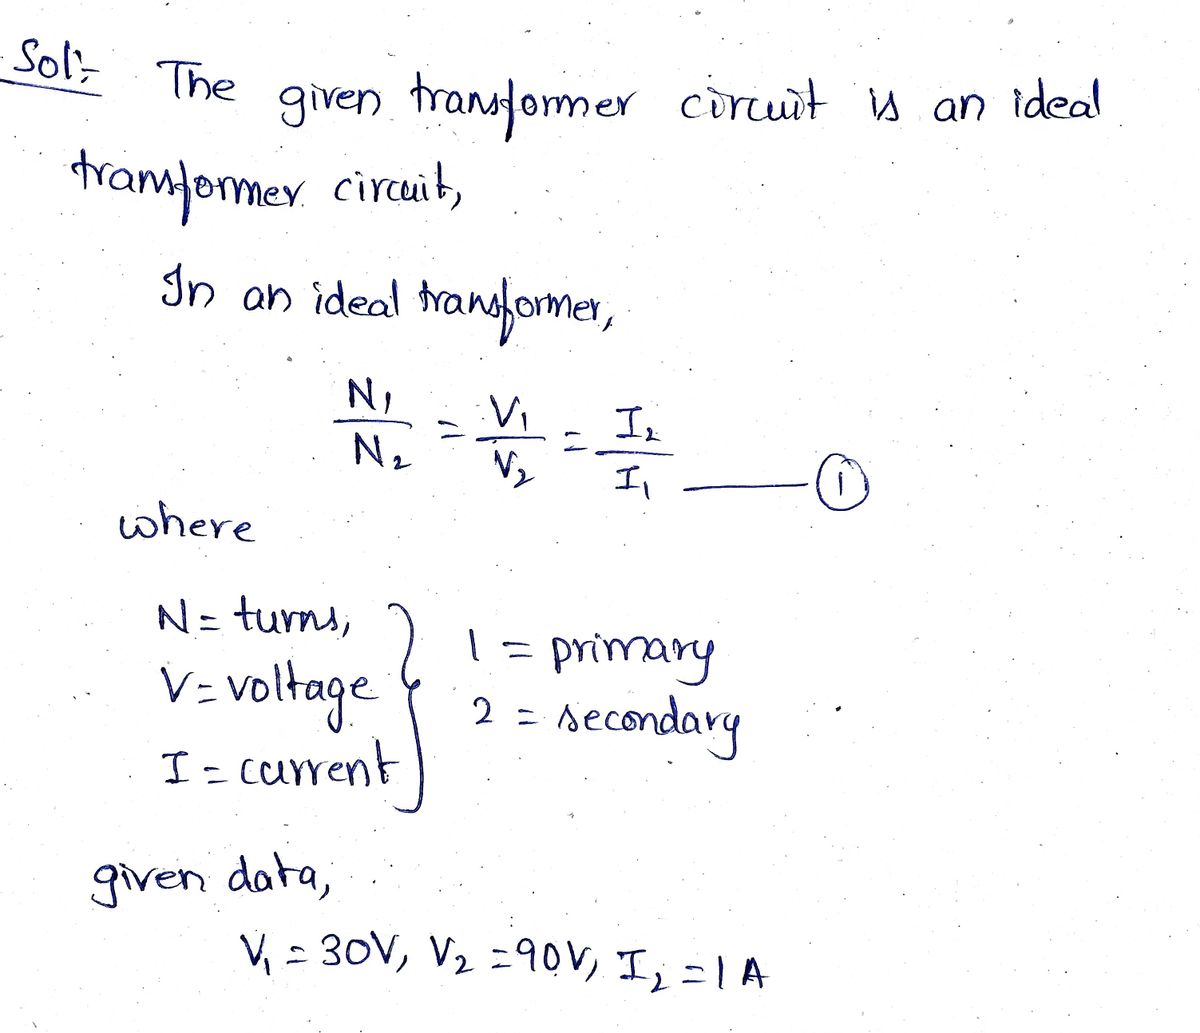 Sol:-  The given transformer circuit is an ideal
transformer circuit,
In an ideal transformer,
N1/N2 = V1/V2 = I2/I1 ——— ①
where
N = turns,
V = voltage
I = current
} 1 = primary
2 = secondary
given data,
V1 = 30V, V2 = 90V, I2 = 1 A